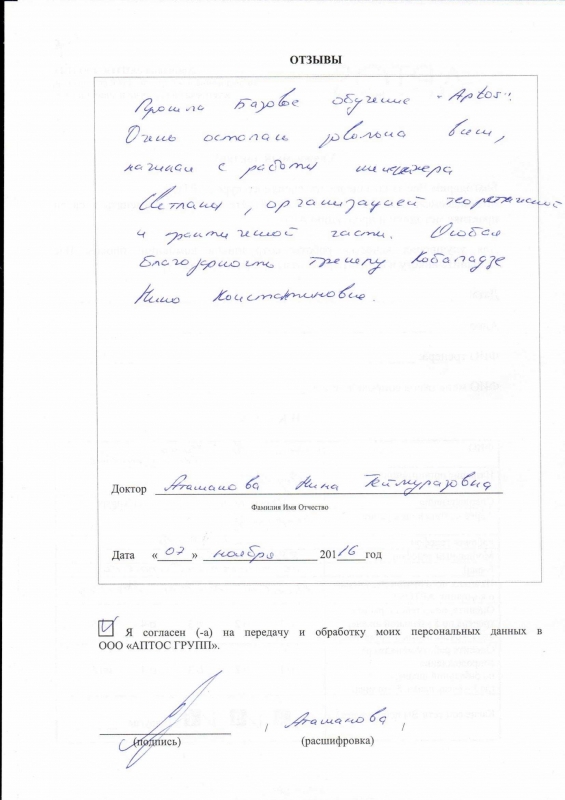 ОТЗЫВЫ
Прошла Базовое обучение "Aptos".
Очень осталась довольна всем,
начиная с работы менеджера
Светланы, организацией теоретической
и практической части. Особая
благодарность тренеру Кобаладзе
Нино Константиновне.
Доктор Аташанова Нина Теймуразовна
Фамилия Имя Отчество
Дата «07» ноября 2016 год
Я согласен (-а) на передачу и обработку моих персональных данных в
ООО «АПТОС ГРУПП».
/ Аташанова /
(подпись) (расшифровка)